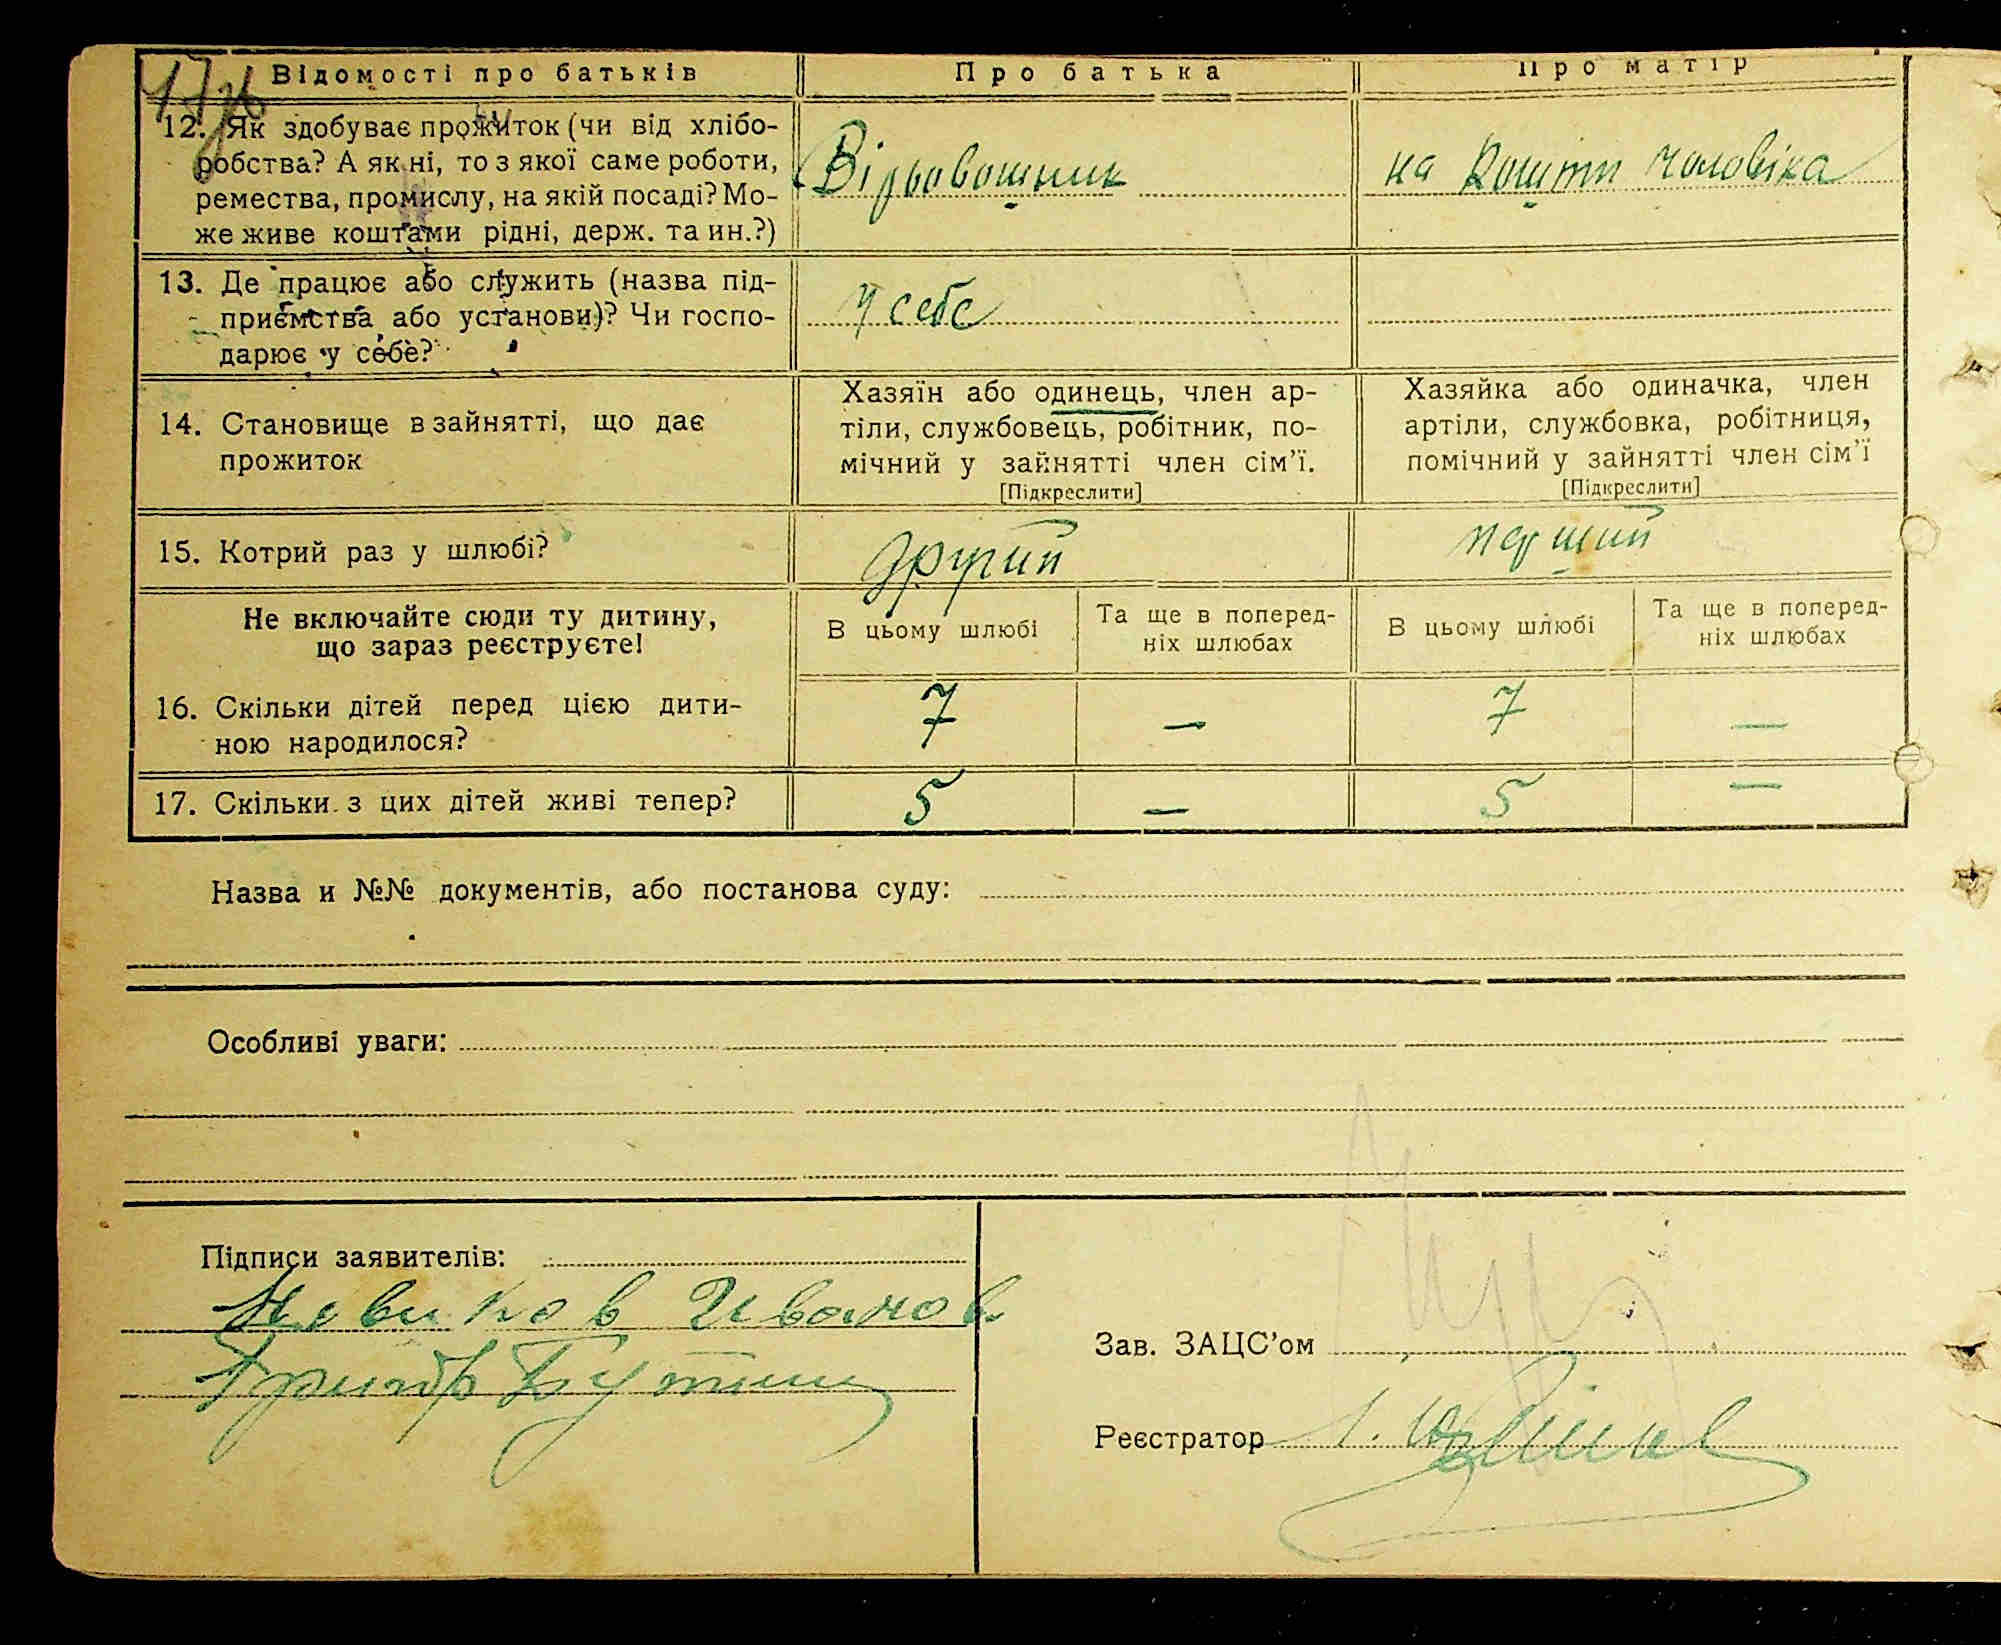 Відомості про батьків
Про батька
Про матір
12. Як здобуває прожиток (чи від хлібо-
робства? А як ні, то з якої саме роботи,
ремества, промислу, на якій посаді? Мо-
же живе коштами рідні, держ. та ин.?)
на кошти чоловіка
13. Де працює або служить (назва під-
приємства або установи)? Чи госпо-
дарює у себе?
у себе
14. Становище в зайнятті, що дає
прожиток
Хазяїн або одинець, член ар-
тіли, службовець, робітник, по-
мічний у зайнятті член сім'ї.
[Підкреслити]
Хазяйка або одиначка, член
артіли, службовка, робітниця,
помічний у зайнятті член сім'ї
[Підкреслити]
15. Котрий раз у шлюбі?
другий
перший
Не включайте сюди ту дитину,
що зараз реєструєте!
В цьому шлюбі
Та ще в поперед-
ніх шлюбах
В цьому шлюбі
Та ще в поперед-
ніх шлюбах
16. Скільки дітей перед цією дити-
ною народилося?
7
—
7
—
17. Скільки з цих дітей живі тепер?
5
—
5
—
Назва и №№ документів, або постанова суду:
Особливі уваги:
Підписи заявителів:
Зав. ЗАЦС'ом
Реєстратор